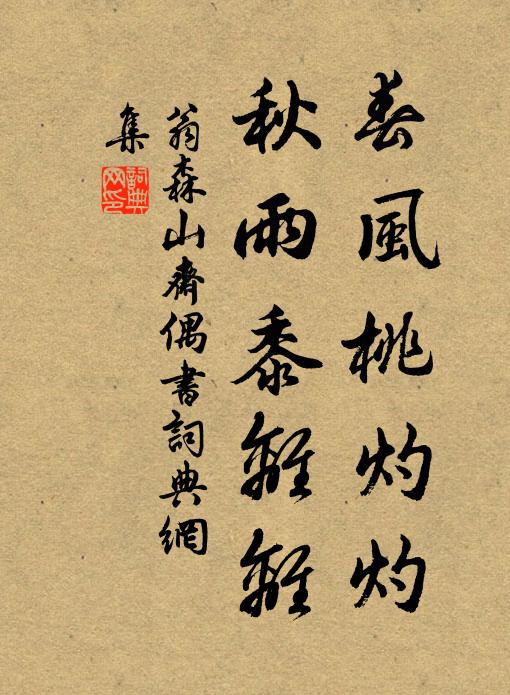 春風桃灼灼
秋雨黍離離
翁森山齋偶書詞典網
集
詞典網印